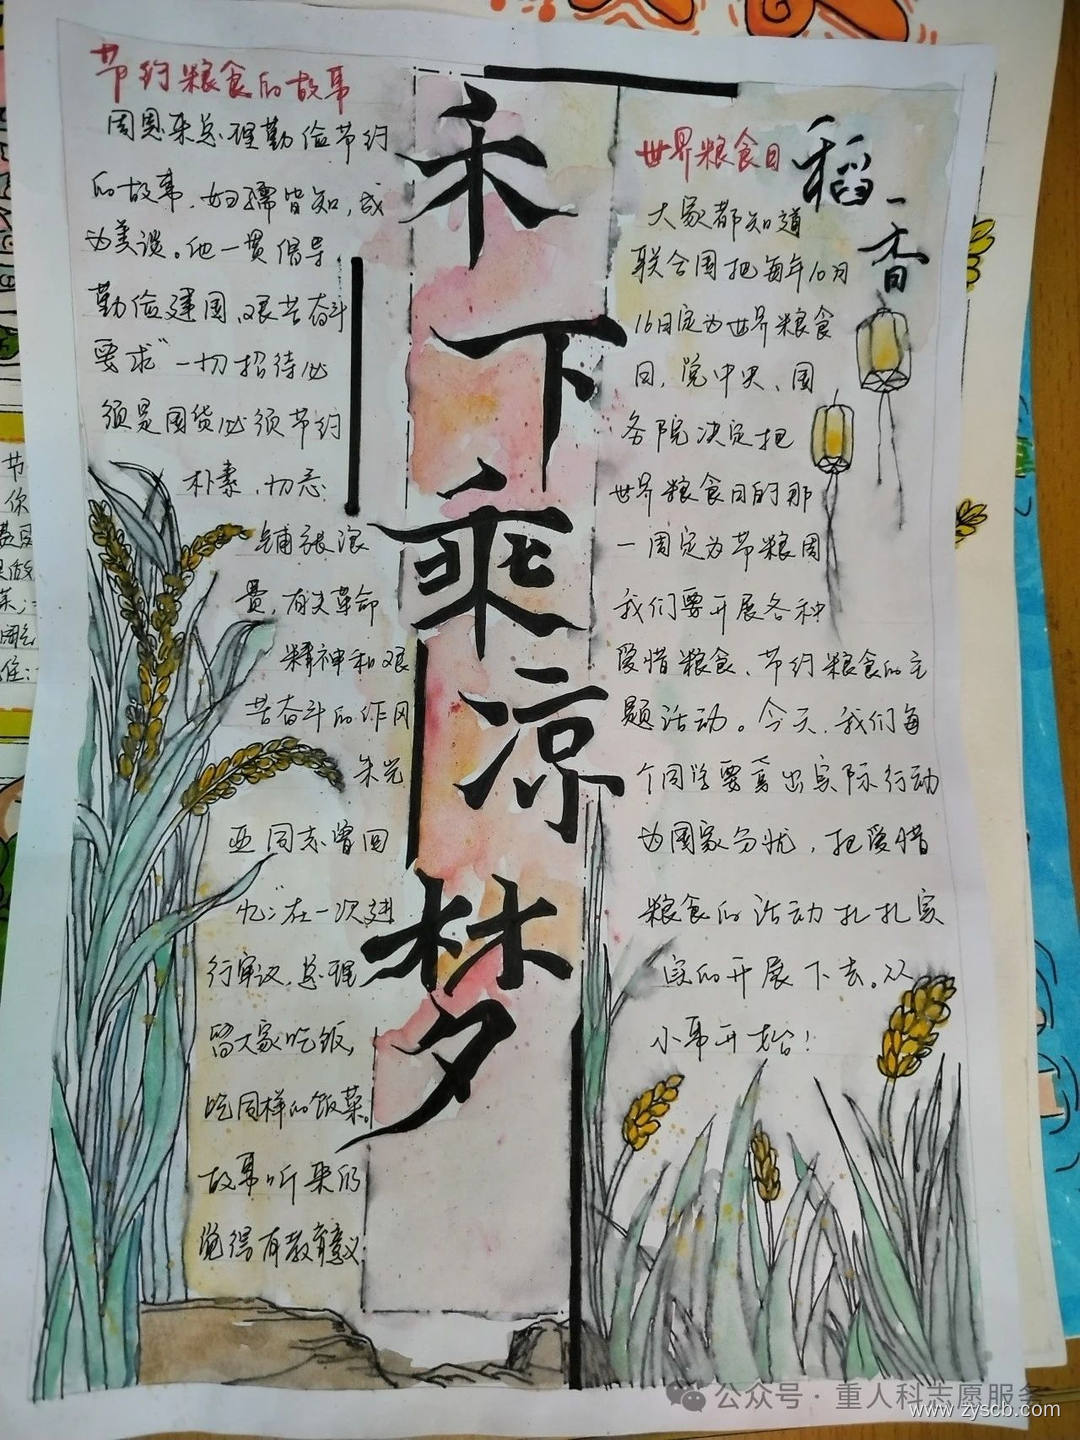 节约粮食的故事
周恩来总理勤俭节约
的故事，妇孺皆知，成
为美谈。他一贯倡导
勤俭建国，艰苦奋斗
要求“一切招待必
须是国货必须节约
朴素，切忌
铺张浪
费，有失革命
精神和艰
苦奋斗的作风
朱光
亚同志曾回
忆：“在一次进
行审议，总理
留大家吃饭，
吃同样的饭菜。
故事听来仍
觉得有教育意义
禾
下
乘
凉
梦
稻
香
世界粮食日
大家都知道
联合国把每年10月
16日定为世界粮食
日，党中央、国
务院决定把
世界粮食日的那
一周定为节粮周
我们要开展各种
爱惜粮食、节约粮食的主
题活动。今天，我们每
个同学要拿出实际行动
为国家分忧，把爱惜
粮食的活动扎扎实
实的开展下去。从
小事开始！
公众号·重人科志愿服务
www.zyscb.com